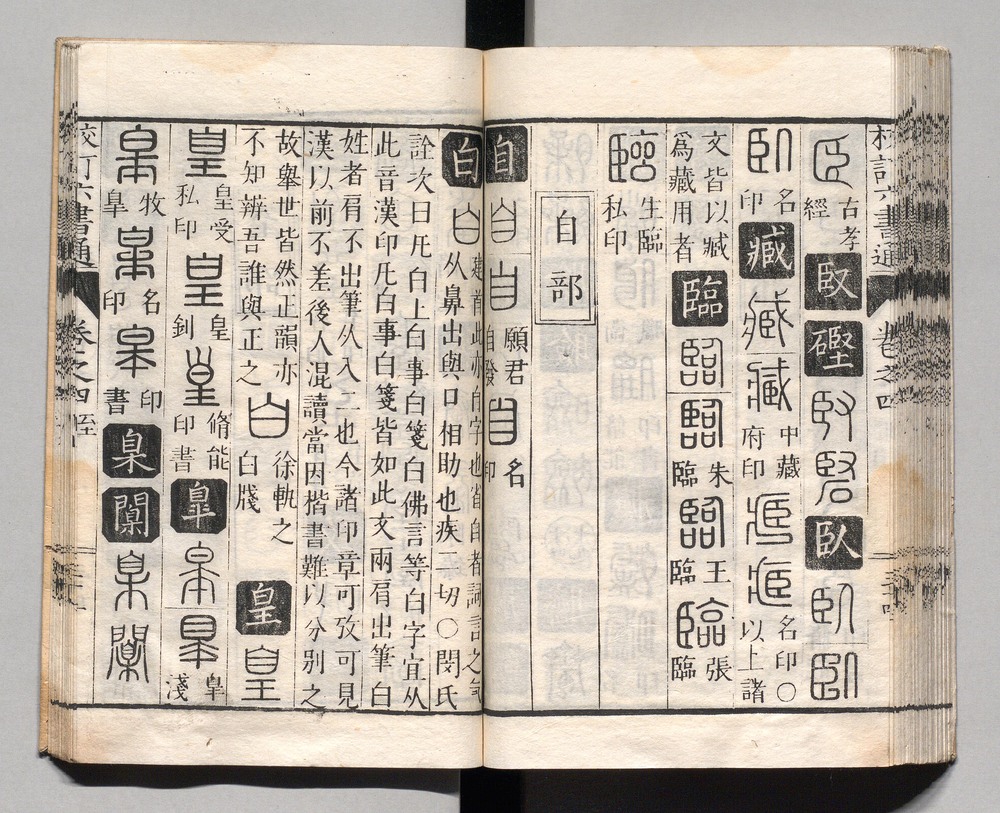 校訂六書通 卷之四
臣 古孝經 臤 硻 臤 硻 臥 臥 臥
臥 名印 臧 臧 臧 中藏府印 臧 臧 名印○以上諸
文皆以臧為藏用者 臨 臨 臨 朱臨 臨 王臨 臨 張臨
臨 生臨私印
自部
自 自 自 願君自發 自 名印
白 白 建首此亦自字也省自者詞言之气
从鼻出與口相助也疾二切○閔氏
詮次曰凡白上白事白箋白佛言等白字宜从
此音漢印凡白事白箋皆如此文兩肩出筆白
姓者肩不出筆从入二也今諸印章可攷可見
漢以前不差後人混讀當因楷書難以分別之
故舉世皆然正韻亦不知辨吾誰與正之 白 徐軌之白牋 皇 皇
皇 皇受私印 皇 皇釗 皇 脩能印書 臯 臯 臯 臯淺
臯 牧臯 臯 名印 臯 印書 臬 闑 臬 闑
校訂六書通 卷之四 至